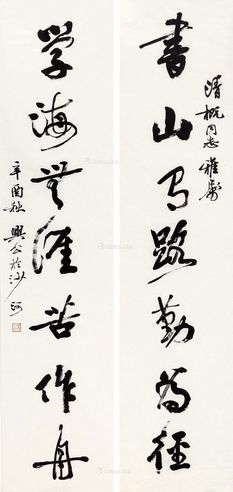 清概同志雅屬
書山有路勤為徑
学海無涯苦作舟
辛酉秋興公於沙河